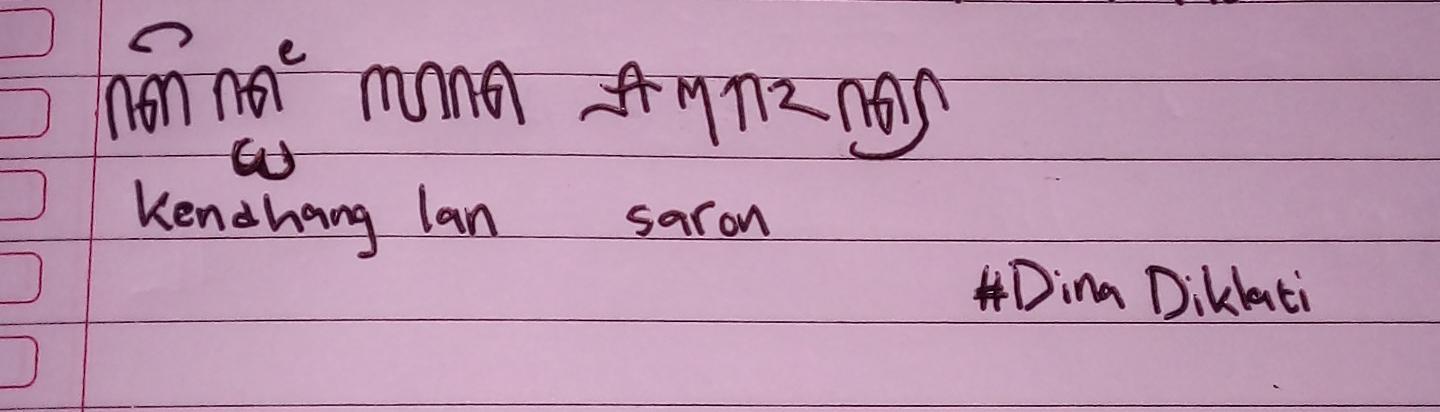 ꦏꦼꦤ꧀ꦝꦁ ꦭꦤ꧀ ꦱꦫꦺꦴꦤ꧀
kendhang lan saron
#Dina Diklati